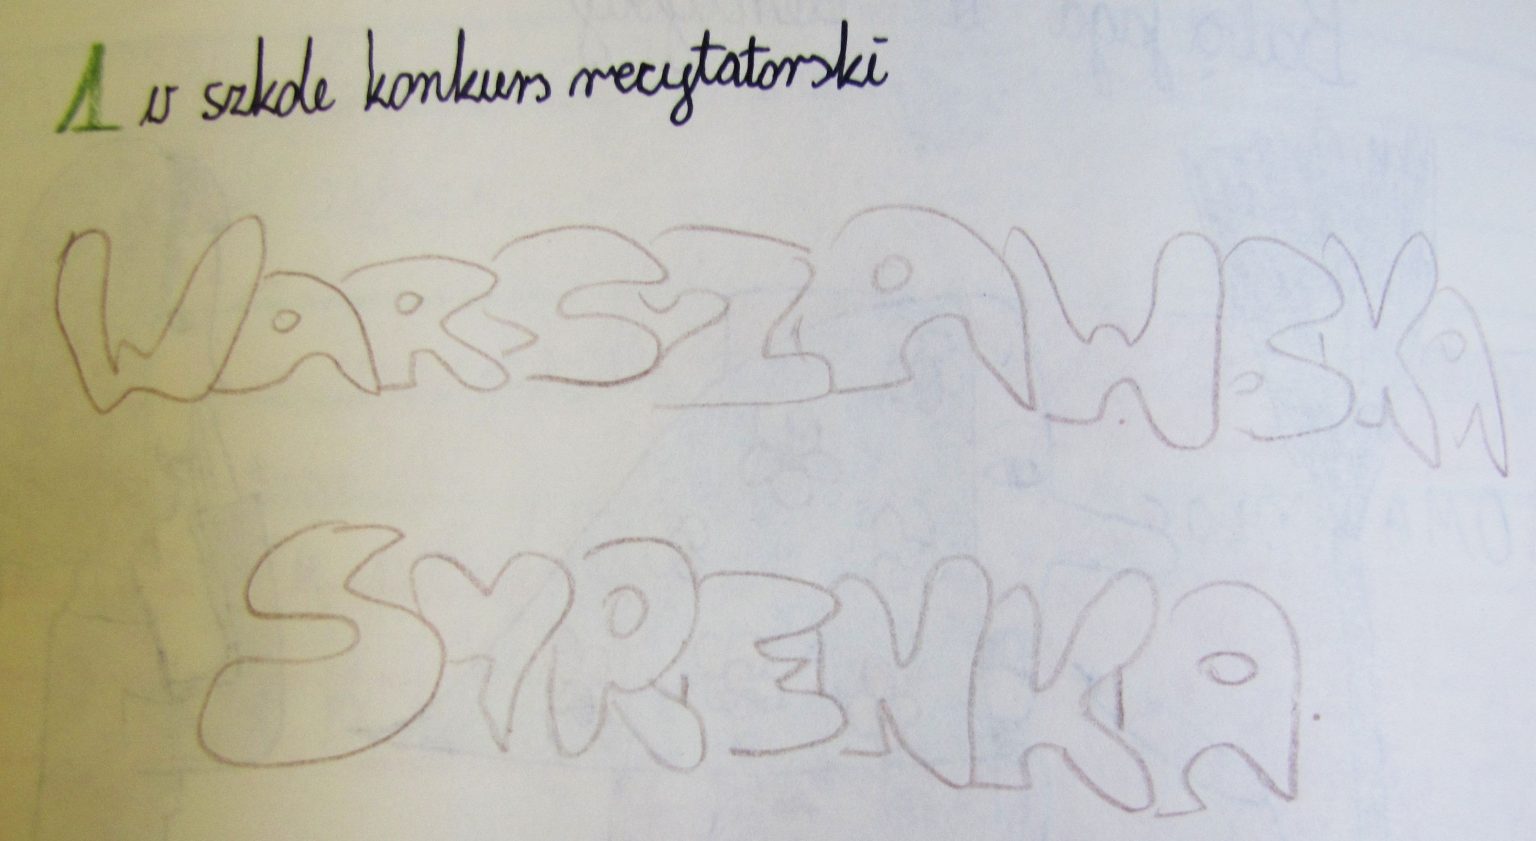 1 w szkole konkurs recytatorski
WARSZAWSKA
SYRENKA